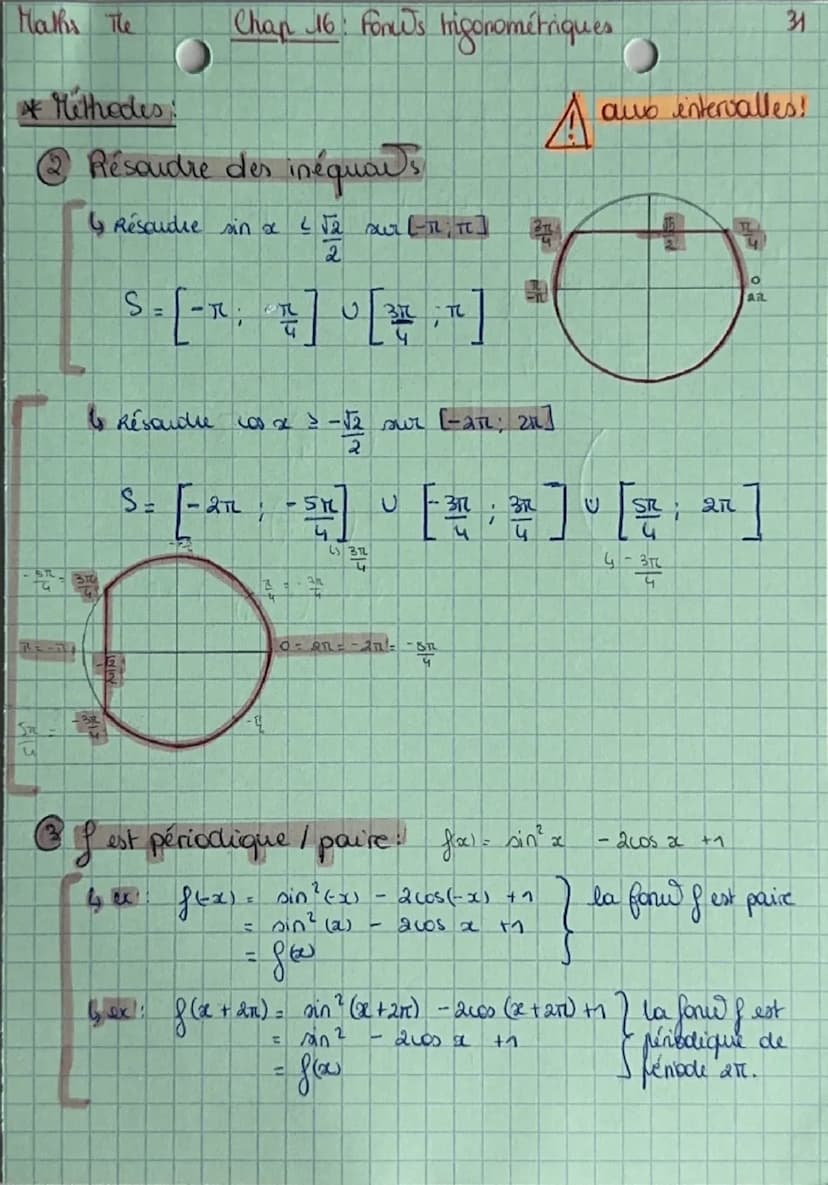 Maths Tle Chap 16: Foncts trigonométriques 31
* Méthodes: ⚠ aux intervalles!
② Résoudre des inéquats
↳ Résoudre sin x ≤ √2/2 sur [-π; π]
3π/4 √2/2 π/4
S = [-π; π/4] ∪ [3π/4; π]
π -π 0 2π
↳ Résoudre cos x ≥ -√2/2 sur [-2π; 2π]
S = [-2π; -5π/4] ∪ [-3π/4; 3π/4] ∪ [5π/4; 2π]
↳ 3π/4 ↳ -3π/4
-5π/4 = 3π/4 π/4 = -7π/4
π = -π -√2/2 0 = 2π = -2π = -8π/4
5π/4 = -3π/4 -π/4
③ f est périodique / paire: f(x) = sin² x - 2cos x + 1
↳ ex: f(-x) = sin²(-x) - 2cos(-x) + 1 } la fonct f est paire
= sin²(x) - 2cos x + 1
= f(x)
↳ ex: f(x + 2π) = sin²(x+2π) - 2cos(x+2π) + 1 } la fonct f est
= sin² - 2cos x + 1 périodique de
= f(x) période 2π.